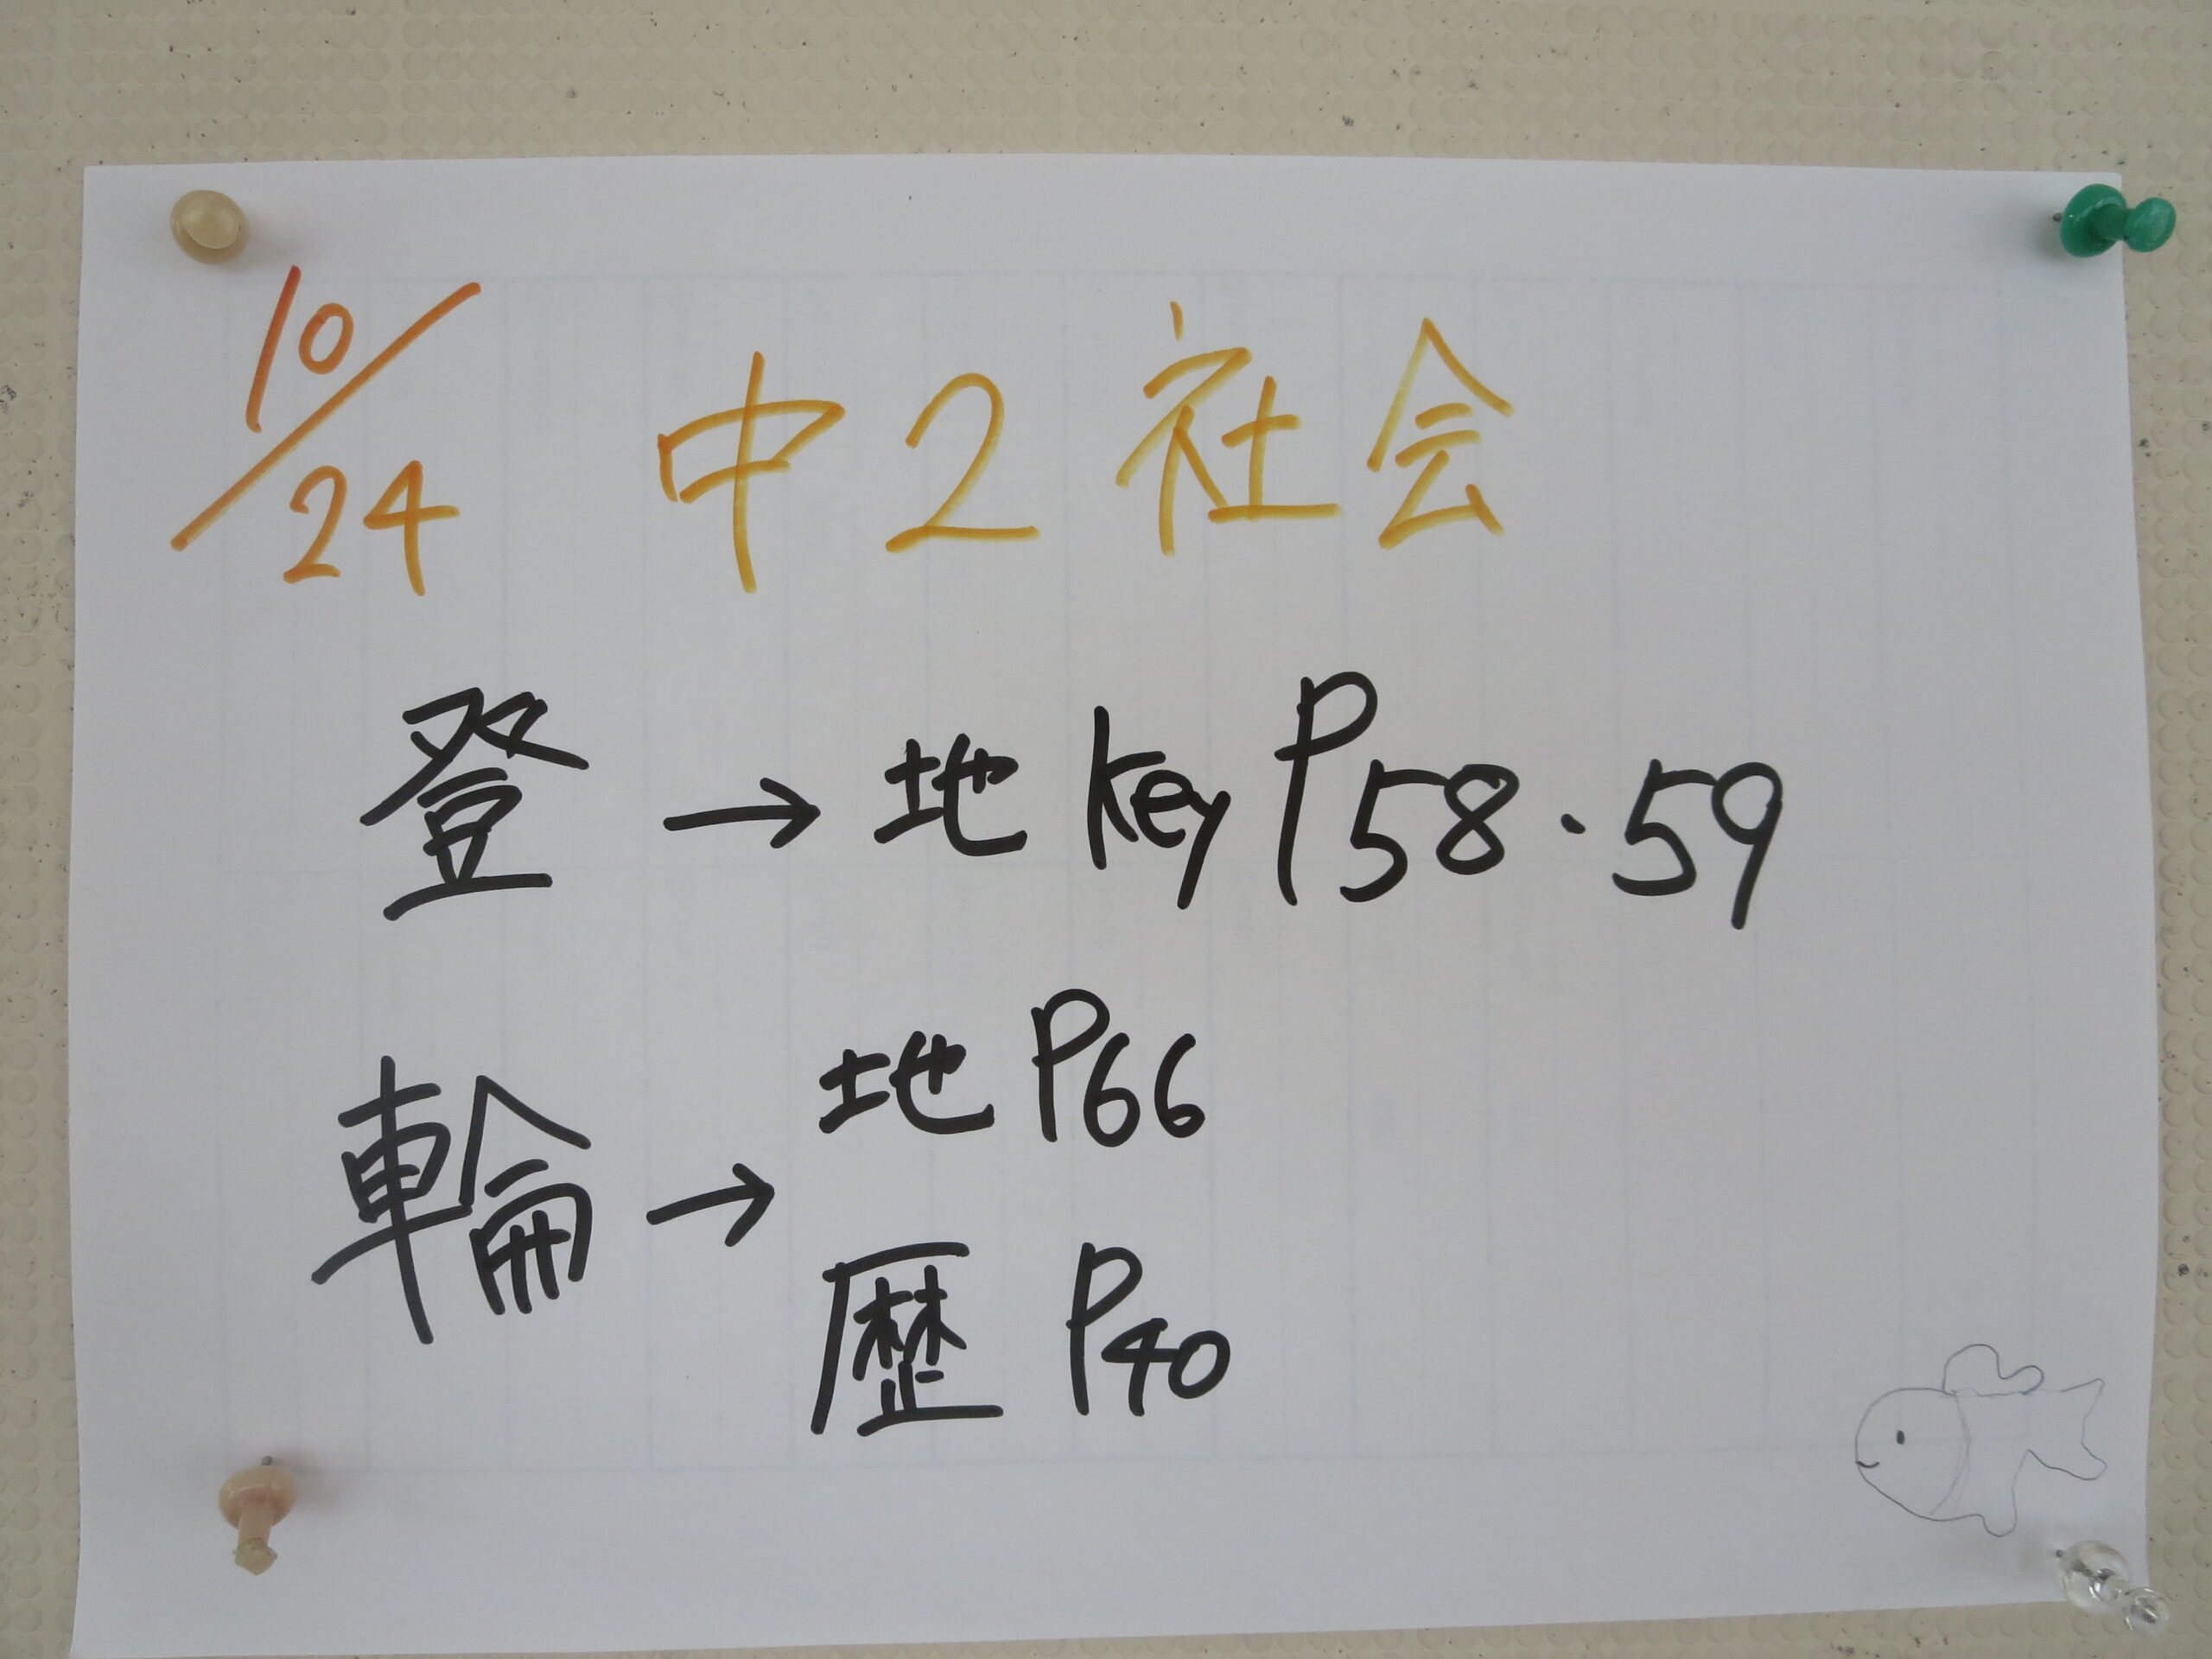 10/24 中2社会
登→地 key P58・59
地 P66
輪→
歴 P40